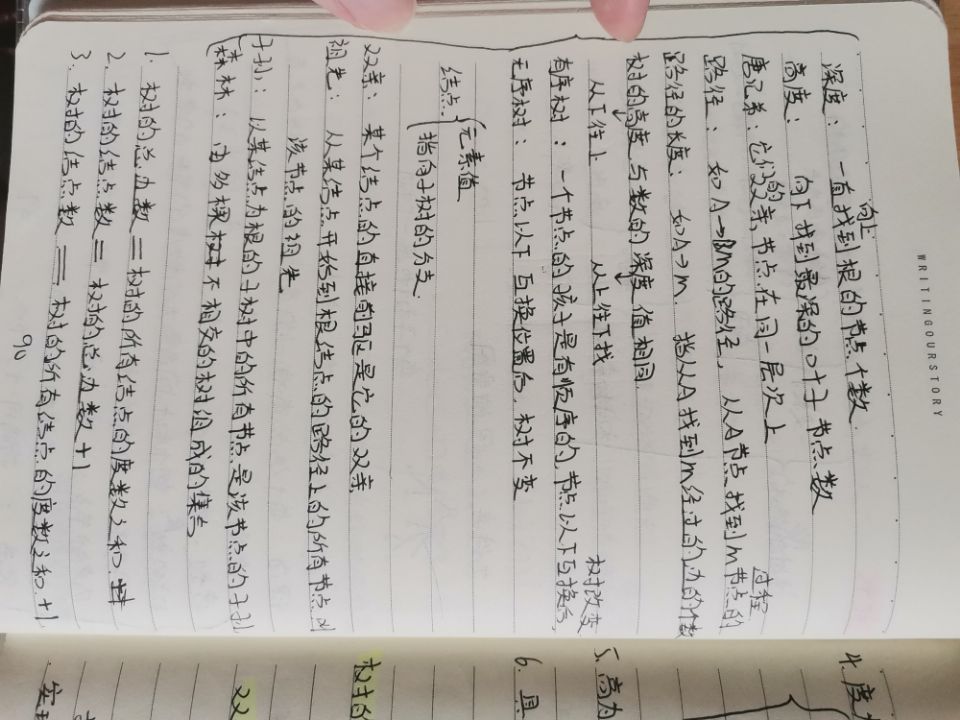 WRITINGOURSTORY
深度：一直向上找到根的节点个数.
高度：向下找到最深的叶子节点数
唐兄弟：它们的双亲,节点在同一层次上
路径：如A→m的路径，从A节点找到m节点的过程
路径的长度：如A→m 指从A找到m经过的边的个数
树的高度与数的深度值相同
从下往上 从上往下找
有序树：一个节点的孩子是有顺序的,节点以下互换后,树改变
无序树：节点以下互换位置后，树不变
结点 元素值
指向子树的分支.
双亲：某个结点的直接前驱是它的双亲
祖先：从某结点开始到根结点的路径上的所有节点叫
该节点的祖先
子孙：以某结点为根的子树中的所有节点是该节点的子孙
森林：由多棵树不相交的树组成的集合
1. 树的总边数=树的所有结点的度数之和
2. 树的结点数=树的总边数+1
3. 树的结点数=树的所有结点的度数之和+1
90
4. 度
5. 高为
6. 具
树的
双
实现